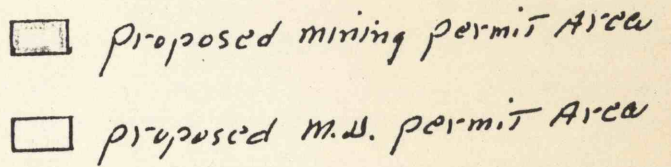 proposed mining permit Area
proposed M.W. permit Area